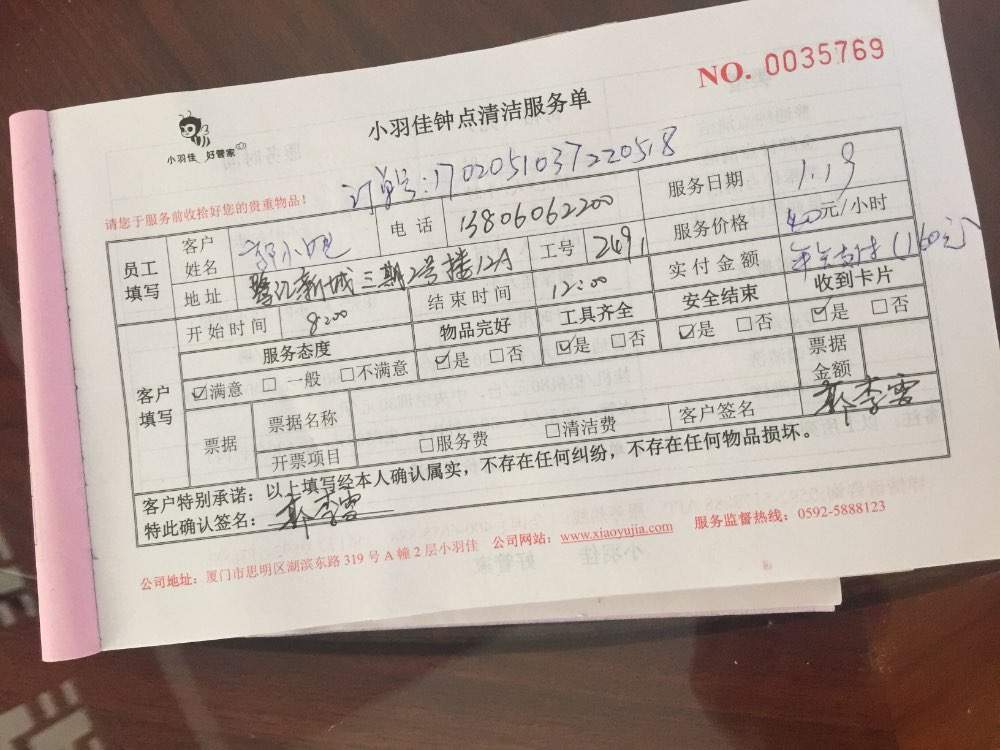 NO. 0035769
小羽佳 好管家
小羽佳钟点清洁服务单
订单号:1702051037220518
请您于服务前收拾好您的贵重物品!
员工填写 客户姓名 电话 13806062200 服务日期 1.19
地址 鹭江新城三期2号楼12A 工号 2491 服务价格 40元/小时
开始时间 8:00 结束时间 12:00 实付金额 (160元)
客户填写 服务态度 物品完好 工具齐全 安全结束 收到卡片
☑满意 □一般 □不满意 ☑是 □否 ☑是 □否 ☑是 □否 ☑是 □否
票据 票据名称 票据金额
开票项目 □服务费 □清洁费 客户签名 郭李雪
客户特别承诺:以上填写经本人确认属实,不存在任何纠纷,不存在任何物品损坏。
特此确认签名:郭李雪
公司地址:厦门市思明区湖滨东路319号A幢2层小羽佳 公司网站:www.xiaoyujia.com 服务监督热线:0592-5888123